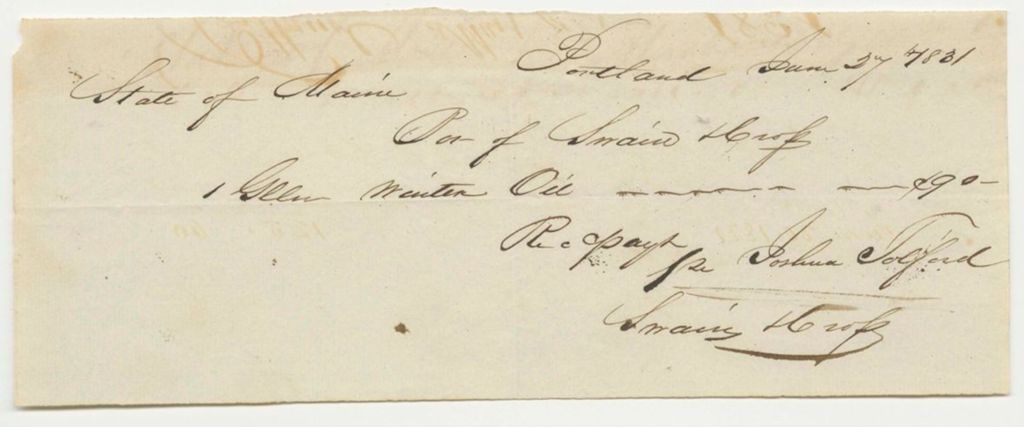 Portland June 27th 1831
State of Maine
Bot of Swain & Cross
1 Galln Winter Oil ——— $0.90
Rec payt
pr Joshua Tolford
Swain & Cross